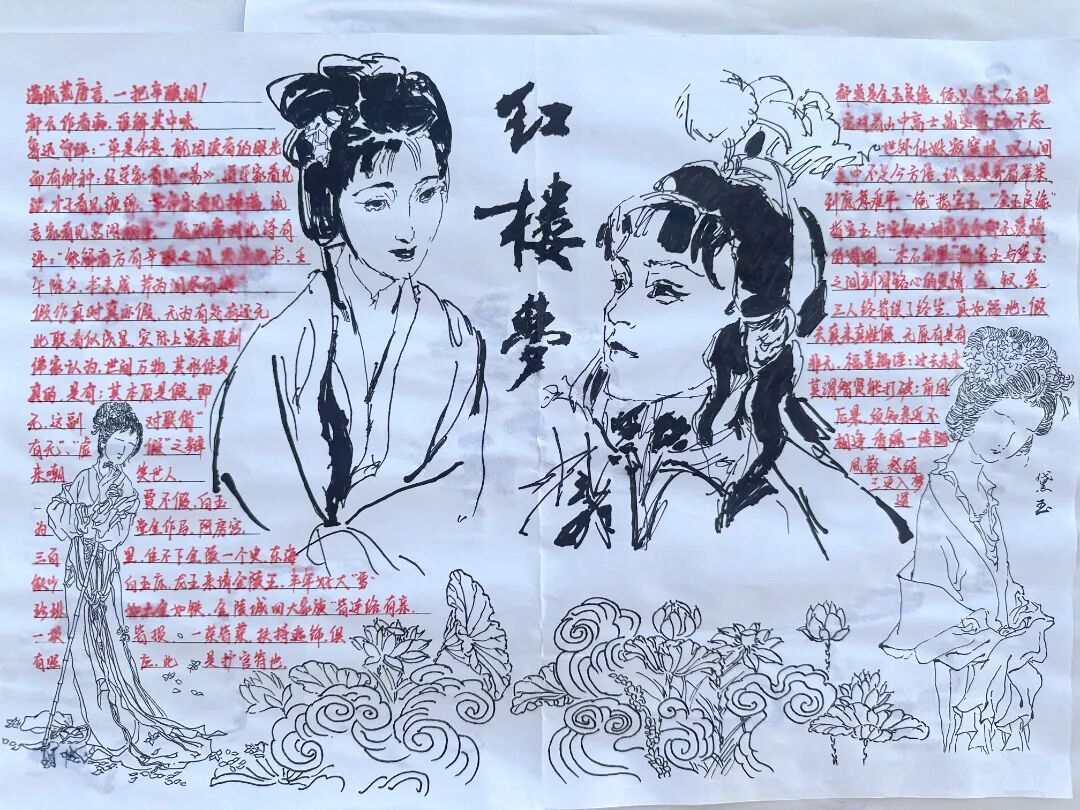 满纸荒唐言，一把辛酸泪！
都云作者痴，谁解其中味
鲁迅曾评："单是命意，就因读者的眼光
而有种种：经学家看见《易》，道学家看见
淫，才子看见缠绵，革命家看见排满，流
言家看见宫闱秘事"
评："能解者方有辛酸之泪，哭成此书，壬
午除夕，书未成，芹为泪尽而逝
假作真时真亦假，无为有处有还无
此联看似浅显，实际上寓意深刻
佛家认为，世间万物，其形似是
真的，是有；其本质是假，即
无，这副 对联借"
有无"、"虚 假"之辩
来嘲 笑世人
贾不假，白玉
为 堂金作马，阿房宫，
三百 里，住不下金陵一个史，东海
缺少 白玉床，龙王来请金陵王，丰年好大"雪"
珍珠 如土金如铁，金陵城四大家族"皆连络有亲，
一损 皆损，一荣皆荣，扶持遮饰，俱
有照 应，此 是护官符也
红楼梦
都道是金玉良缘，俺只念木石前盟
空对着山中高士晶莹雪，终不忘
世外仙姝寂寞林，叹人间
美中不足今方信，纵然是齐眉举案
到底意难平，"俺"指宝玉，"金玉良缘"
指宝玉与宝钗之间
的婚姻，"木石前盟"指宝玉与黛玉
之间刻骨铭心的爱情，宝、钗、黛
三人终皆误了终生，真如福地：假
去真来真胜假，无原有是有
非无，福善祸淫：过去未来
莫谓智贤能打破；前因
后果，须知亲近不
相逢，香魂一缕随
风散，愁绪
三更入梦
遥
黛玉